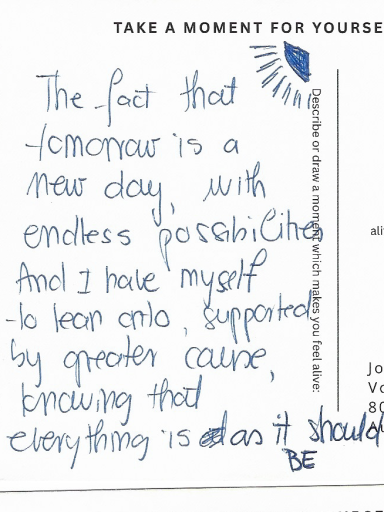 TAKE A MOMENT FOR YOURSE
The fact that
tomorrow is a
new day, with
endless possibilities
And I have myself
to lean onto, supported
by greater cause,
knowing that
everything is as it should
BE
Describe or draw a moment which makes you feel alive:
ali
Jo
Vo
80